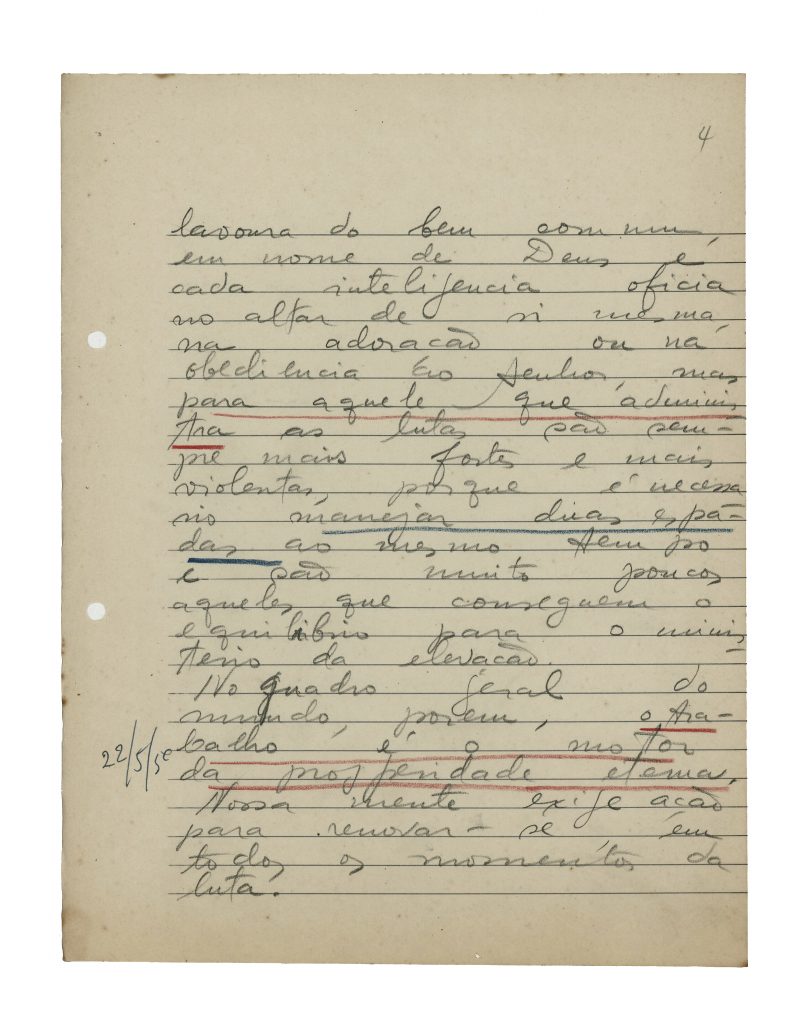 4
lavoura do bem commum
em nome de Deus e
cada inteligencia oficia
no altar de si mesma,
na adoracão ou na
obediencia ao Senhor, mas
para aquele que adminis
tra as lutas são sem-
pre mais fortes e mais
violentas, porque é necessa
rio manejar duas espa-
das ao mesmo tempo
e são muito poucos
aqueles que conseguem o
equilibrio para o minis
terio da elevacão.
No quadro geral do
mundo, porem, o tra-
balho é o motor
da prosperidade eterna.
22/5/50
Nossa mente exije acão
para renovar-se em
todos os momentos da
luta.